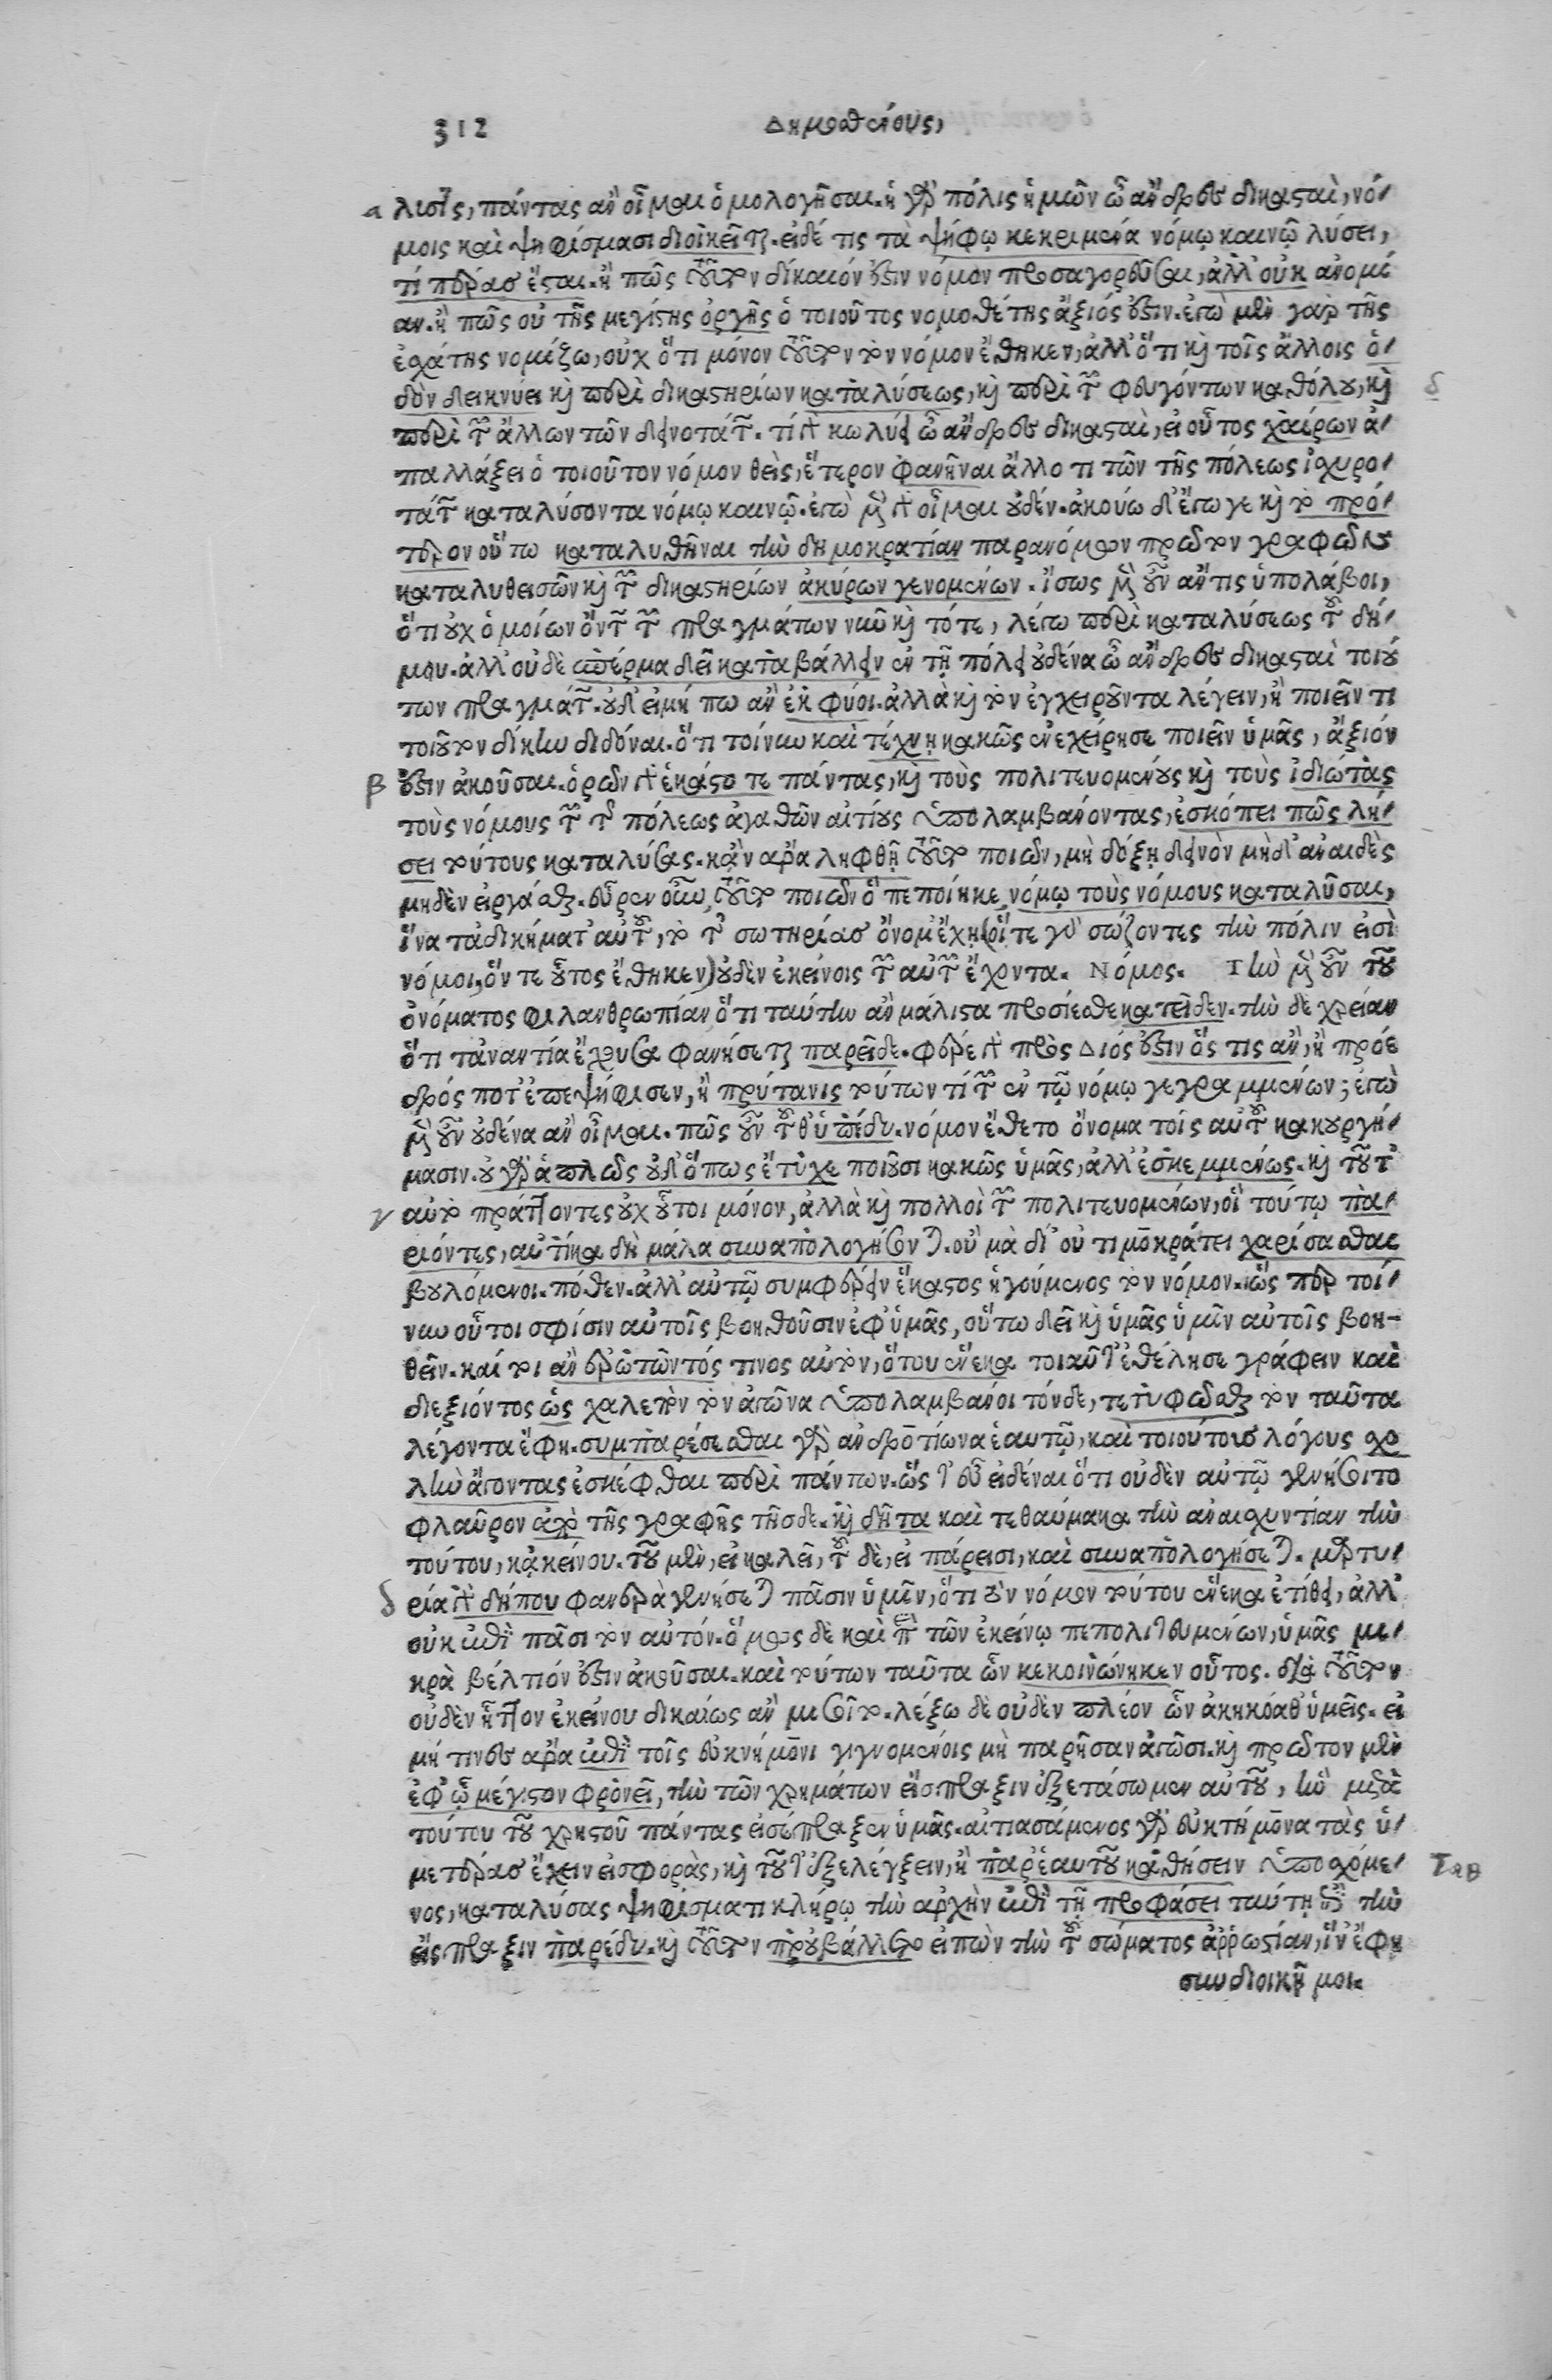 312
Δημοσθένους,
α λιστ᾽ εἰς, πάντας ἂν οἶμαι ὁμολογῆσαι. ἡ γὰρ πόλις ἡμῶν ὦ ἄνδρες δικασταὶ, νό-
μοις καὶ ψηφίσμασι διοικεῖται. εἰ δέ τις τὰ ψήφῳ κεκριμένα νόμῳ καινῷ λύσει,
τί πέρας ἔσται. ἢ πῶς τοῦτον δίκαιόν ἐστιν νόμον προσαγορεῦσαι, ἀλλ᾽ οὐκ ἀνομί
αν. ἢ πῶς οὐ τῆς μεγίστης ὀργῆς ὁ τοιοῦτος νομοθέτης ἄξιός ἐστιν. ἐγὼ μὲν γὰρ τῆς
ἐσχάτης νομίζω, οὐχ ὅτι μόνον τοῦτον τὸν νόμον ἔθηκεν, ἀλλ᾽ ὅτι καὶ τοῖς ἄλλοις ὁ-
δὸν δεικνύει καὶ περὶ δικαστηρίων καταλύσεως, καὶ περὶ τῶν φευγόντων καθόλου, καὶ δ
περὶ τῶν ἄλλων τῶν δεινοτάτων. τί γὰρ κωλύει ὦ ἄνδρες δικασταὶ, εἰ οὗτος χαίρων ἀ-
παλλάξει ὁ τοιοῦτον νόμον θεὶς, ἕτερον φανῆναι ἄλλο τι τῶν τῆς πόλεως ἰσχυρο-
τάτων καταλύσοντα νόμῳ καινῷ. ἐγὼ μὲν γὰρ οἶμαι οὐδέν. ἀκούω δ᾽ ἔγωγε καὶ τὸ πρό-
τερον οὕτω καταλυθῆναι τὴν δημοκρατίαν παρανόμων πρῶτον γραφῶν
καταλυθεισῶν καὶ τῶν δικαστηρίων ἀκύρων γενομένων. ἴσως μὲν οὖν ἄν τις ὑπολάβοι,
ὅτι οὐχ ὁμοίων ὄντων τῶν πραγμάτων νῦν καὶ τότε, λέγω περὶ καταλύσεως τοῦ δή-
μου. ἀλλ᾽ οὐδὲ σπέρμα δεῖ καταβάλλειν ἐν τῇ πόλει οὐδένα ὦ ἄνδρες δικασταὶ τοιού
των πραγμάτων. οὐδ᾽ εἰ μή πω ἂν ἐκφύοι. ἀλλὰ καὶ τὸν ἐγχειροῦντα λέγειν, ἢ ποιεῖν τι
τοιοῦτον δίκην διδόναι. ὅτι τοίνυν καὶ τέχνῃ κακῶς ἐνεχείρησε ποιεῖν ὑμᾶς, ἄξιόν
β ἐστιν ἀκοῦσαι. ὁρῶν γὰρ ἑκάστοτε πάντας, καὶ τοὺς πολιτευομένους καὶ τοὺς ἰδιώτας
τοὺς νόμους τῶν τῆς πόλεως ἀγαθῶν αἰτίους ὑπολαμβάνοντας, ἐσκόπει πῶς λή-
σει τούτους καταλύσας. κἂν ἄρα ληφθῇ τοῦτο ποιῶν, μὴ δόξῃ δεινὸν μηδ᾽ ἀναιδὲς
μηδὲν εἰργάσθαι. εὗρεν οὖν, τοῦτο ποιῶν ὃ πεποίηκε, νόμῳ τοὺς νόμους καταλῦσαι,
ἵνα τἀδικήματ᾽ αὐτοῦ, τὸ τῆς σωτηρίας ὄνομ᾽ ἔχῃ (οἵ τε γὰρ σώζοντες τὴν πόλιν εἰσὶ
νόμοι, ὅν τε οὗτος ἔθηκεν) οὐδὲν ἐκείνοις τῶν αὐτῶν ἔχοντα. Νόμος. Τὴν μὲν οὖν τοῦ
ὀνόματος φιλανθρωπίαν ὅτι ταύτην ἂν μάλιστα προσίεσθε κατεῖδεν. τὴν δὲ χρείαν
ὅτι τἀναντία ἔχουσα φανήσεται παρεῖδε. φέρε γὰρ πρὸς Διός ἐστιν ὅς τις ἂν, ἢ πρόε
δρός ποτ᾽ ἐπεψήφισεν, ἢ πρύτανις τούτων τί τῶν ἐν τῷ νόμῳ γεγραμμένων; ἐγὼ
μὲν οὖν οὐδένα ἂν οἶμαι. πῶς οὖν τοῦθ᾽ ὑπέδυ. νόμον ἔθετο ὄνομα τοῖς αὑτοῦ κακουργή-
μασιν. οὐ γὰρ ἁπλῶς οὐδ᾽ ὅπως ἔτυχε ποιοῦσι κακῶς ὑμᾶς, ἀλλ᾽ ἐσκεμμένως. καὶ τοῦτ᾽
γ αὐτὸ πράττοντες οὐχ οὗτοι μόνον, ἀλλὰ καὶ πολλοὶ τῶν πολιτευομένων, οἳ τούτῳ πα-
ριόντες, αὐτίκα δὴ μάλα συναπολογήσονται. οὔ μὰ δί᾽ οὐ τιμοκράτει χαρίσασθαι
βουλόμενοι. πόθεν. ἀλλ᾽ αὑτῷ συμφέρειν ἕκαστος ἡγούμενος τὸν νόμον. ὥσπερ τοί-
νυν οὗτοι σφίσιν αὐτοῖς βοηθοῦσιν ἐφ᾽ ὑμᾶς, οὕτω δεῖ καὶ ὑμᾶς ὑμῖν αὐτοῖς βοη-
θεῖν. καί τοι ἂν ἐρωτῶντός τινος αὐτὸν, ὅτου ἕνεκα τοιαῦτ᾽ ἐθέλησε γράφειν καὶ
διεξιόντος ὡς χαλεπὸν τὸν ἀγῶνα ὑπολαμβάνοι τόνδε, τετυφῶσθαι τὸν ταῦτα
λέγοντα ἔφη. συμπαρέσεσθαι γὰρ ἀνδροτίωνα ἑαυτῷ, καὶ τοιούτους λόγους σχο
λὴν ἄγοντας ἐσκέφθαι περὶ πάντων. ὥστ᾽ εὖ εἰδέναι ὅτι οὐδὲν αὐτῷ γενήσοιτο
φλαῦρον ἀπὸ τῆς γραφῆς τῆσδε. καὶ δῆτα καὶ τεθαύμακα τὴν ἀναισχυντίαν τὴν
τούτου, κἀκείνου. τοῦ μὲν, εἰ καλεῖ, τοῦ δὲ, εἰ πάρεισι, καὶ συναπολογήσεται. μαρτυ-
δ ρία γὰρ δήπου φανερὰ γενήσεται πᾶσιν ὑμῖν, ὅτι τὸν νόμον τούτου ἕνεκα ἐτίθει, ἀλλ᾽
οὐκ ἐπὶ πᾶσι τὸν αὐτόν. ὅμως δὲ καὶ περὶ τῶν ἐκείνῳ πεπολιτευμένων, ὑμᾶς μι-
κρὰ βέλτιόν ἐστιν ἀκοῦσαι. καὶ τούτων ταῦτα ὧν κεκοινώνηκεν οὗτος. διὰ τοῦτον
οὐδὲν ἧττον ἐκείνου δικαίως ἂν μισοῖτο. λέξω δὲ οὐδὲν πλέον ὧν ἀκηκόαθ᾽ ὑμεῖς. εἰ
μή τινες ἄρα ἐπὶ τοῖς εὐκνήμονι γιγνομένοις μὴ παρῆσαν ἀγῶσι. καὶ πρῶτον μὲν
ἐφ᾽ ᾧ μέγιστον φρονεῖ, τὴν τῶν χρημάτων εἴσπραξιν ἐξετάσωμεν αὐτοῦ, ἣν μετὰ
τούτου τοῦ χρηστοῦ πάντας εἰσέπραξεν ὑμᾶς. αἰτιασάμενος γὰρ εὐκτήμονα τὰς ὑ-
μετέρας ἔχειν εἰσφορὰς, καὶ τοῦτ᾽ ἐξελέγξειν, ἢ παρ᾽ ἑαυτοῦ καθήσειν ὑποσχόμε-
νος, καταλύσας ψηφίσματι κλήρῳ τὴν ἀρχὴν ἐπὶ τῇ προφάσει ταύτῃ ἐπὶ τὴν
εἴσπραξιν παρέδυ. καὶ τοῦτον προὐβάλλετο εἰπὼν τὴν τοῦ σώματος ἀῤῥωστίαν, ἵν᾽ ἔφη
συνδιοικῇ μοι.